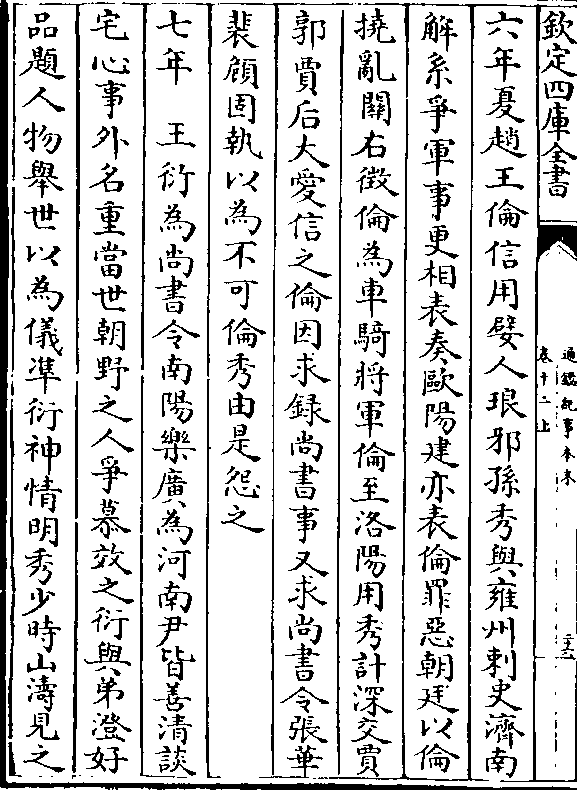 欽定四庫全書
通鑑紀事本末
卷十二上
六年夏趙王倫信用嬖人琅邪孫秀與雍州刺史濟南
解系爭軍事更相表奏歐陽建亦表倫罪惡朝廷以倫
撓亂關右徴倫為車騎將軍倫至洛陽用秀計深交賈
郭賈后大愛信之倫因求録尚書事又求尚書令張華
裴頠固執以為不可倫秀由是怨之
七年　王衍為尚書令南陽樂廣為河南尹皆善清談
宅心事外名重當世朝野之人爭慕效之衍與弟澄好
品題人物舉世以為儀準衍神情明秀少時山濤見之